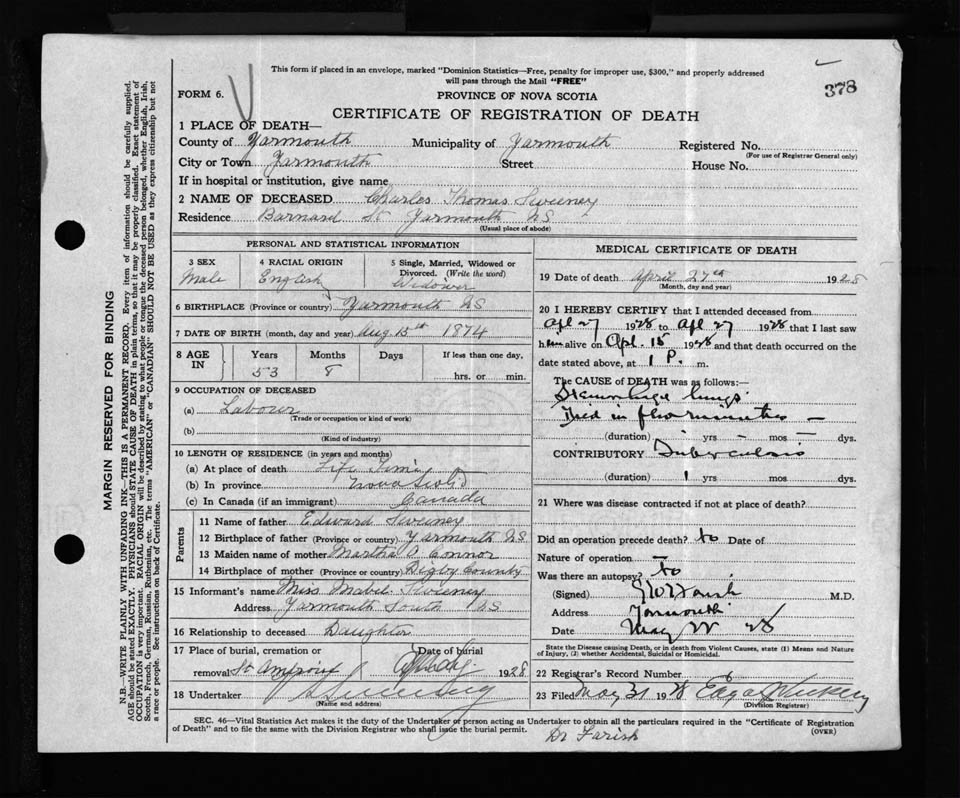 This form if placed in an envelope, marked "Dominion Statistics—Free, penalty for improper use, $300," and properly addressed
will pass through the Mail "FREE"
378
FORM 6.
PROVINCE OF NOVA SCOTIA
CERTIFICATE OF REGISTRATION OF DEATH
1 PLACE OF DEATH—
County of Yarmouth Municipality of Yarmouth Registered No.
(For use of Registrar General only)
City or Town Yarmouth Street House No.
If in hospital or institution, give name
2 NAME OF DECEASED Charles Thomas Sweeney
Residence Barnard St Yarmouth NS
(Usual place of abode)
PERSONAL AND STATISTICAL INFORMATION
3 SEX Male
4 RACIAL ORIGIN English
5 Single, Married, Widowed or Divorced. (Write the word) Widower
6 BIRTHPLACE (Province or country) Yarmouth NS
7 DATE OF BIRTH (month, day and year) Aug 15th 1874
8 AGE IN Years Months Days If less than one day,
53 8 hrs. or min.
9 OCCUPATION OF DECEASED
(a) Labour
(Trade or occupation or kind of work)
(b)
(Kind of industry)
10 LENGTH OF RESIDENCE (in years and months)
(a) At place of death Life Time
(b) In province Nova Scotia
(c) In Canada (if an immigrant) Canada
Parents
11 Name of father Edward Sweeney
12 Birthplace of father (Province or country) Yarmouth NS
13 Maiden name of mother Martha O Connor
14 Birthplace of mother (Province or country) Digby County
15 Informant's name Miss Mabel Sweeney
Address Yarmouth South NS
16 Relationship to deceased Daughter
17 Place of burial, cremation or removal Date of burial
St 1928
18 Undertaker
(Name and address)
MEDICAL CERTIFICATE OF DEATH
19 Date of death April 27th 1928
(Month, day and year)
20 I HEREBY CERTIFY that I attended deceased from
Apl 27 1928 to Apl 27 1928 that I last saw
him alive on Apl. 15 1928 and that death occurred on the
date stated above, at 1 P. m.
The CAUSE of DEATH was as follows:—
Hemorrhage lungs
Died in few minutes —
(duration) — yrs — mos — dys.
CONTRIBUTORY Tuberculosis
(duration) 1 yrs mos dys.
21 Where was disease contracted if not at place of death?
Did an operation precede death? No Date of
Nature of operation —
Was there an autopsy? No
(Signed) M.D.
Address Yarmouth
Date May 28
State the Disease causing Death, or in death from Violent Causes, state (1) Means and Nature
of Injury, (2) whether Accidental, Suicidal or Homicidal.
22 Registrar's Record Number
23 Filed May 31 1928
(Division Registrar)
SEC. 46—Vital Statistics Act makes it the duty of the Undertaker or person acting as Undertaker to obtain all the particulars required in the "Certificate of Registration
of Death" and to file the same with the Division Registrar who shall issue the burial permit.
(OVER)
Dr Farish
MARGIN RESERVED FOR BINDING
N.B.—WRITE PLAINLY WITH UNFADING INK—THIS IS A PERMANENT RECORD. Every item of information should be carefully supplied.
AGE should be stated EXACTLY. PHYSICIANS should STATE CAUSE OF DEATH in plain terms, so that it may be properly classified. Exact statement of
OCCUPATION is very important. RACIAL ORIGIN will be described by stating to what people or tongue the deceased person belonged, whether English, Irish,
Scotch, French, German, Russian, Ruthenian, etc. The terms "AMERICAN" or "CANADIAN" SHOULD NOT BE USED as they express citizenship but not
a race or people. See instructions on back of Certificate.